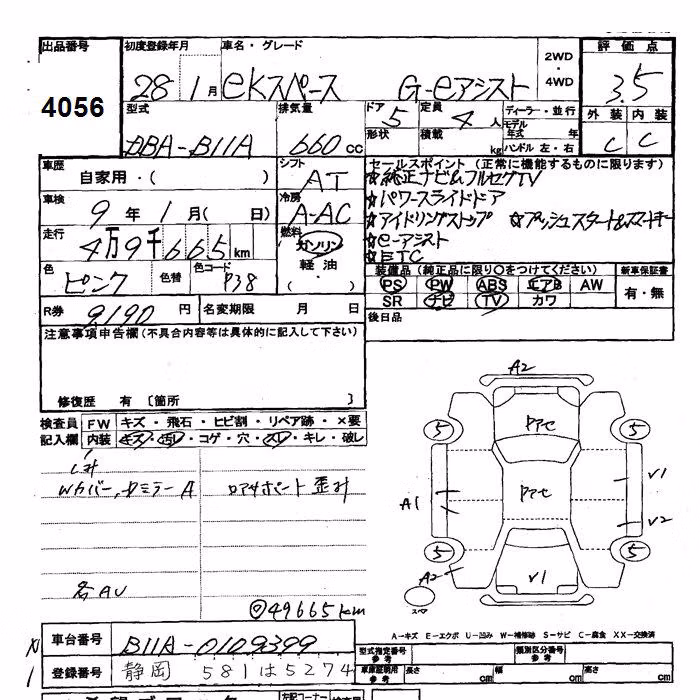 出品番号 初度登録年月 車名・グレード 2WD・4WD 評価点
4056 28 1月 eKスペース G-eアシスト 3.5
型式 排気量 ドア 定員 ディーラー・並行 外装 内装
DBA-B11A 660cc 5 4人 モデル年式 年 C C
形状 積載 kg ハンドル 左・右
車歴 シフト セールスポイント (正常に機能するものに限ります)
自家用・( ) AT ☆純正ナビ&フルセグTV
車検 冷房 ☆パワースライドドア
9年1月( 日) A-AC ☆アイドリングストップ ☆プッシュスタート&スマートキー
走行 燃料 ☆e-アシスト
4万9千665km ガソリン ☆ETC
色 色替 色コード 軽油 装備品 (純正品に限り○をつけてください) 新車保証書
ピンク P38 ( ・ ) PS PW ABS エアB AW 有・無
SR ナビ TV カワ
R券 9190円 名変期限 月 日 後日品
注意事項申告欄(不具合内容等は具体的に記入して下さい)
修復歴 有 〔箇所 〕
検査員 FW キズ・飛石・ヒビ割・リペア跡・×要
記入欄 内装 キズ・汚レ・コゲ・穴・スレ・キレ・破レ
Wカバー、ドミラーA ロアサポート歪み
名AU
◎49665km
A2
5 アセ 5
アセ V1
A1 V2
5 5
A2 V1
スペア
A-キズ E-エクボ U-凹み W-補修跡 S-サビ C-腐食 XX-交換済
車台番号 B11A-0109399 型式指定番号 参考 類別区分番号 参考
登録番号 静岡 581は5274 車庫証明用 参考 長さ cm 幅 cm 高さ cm